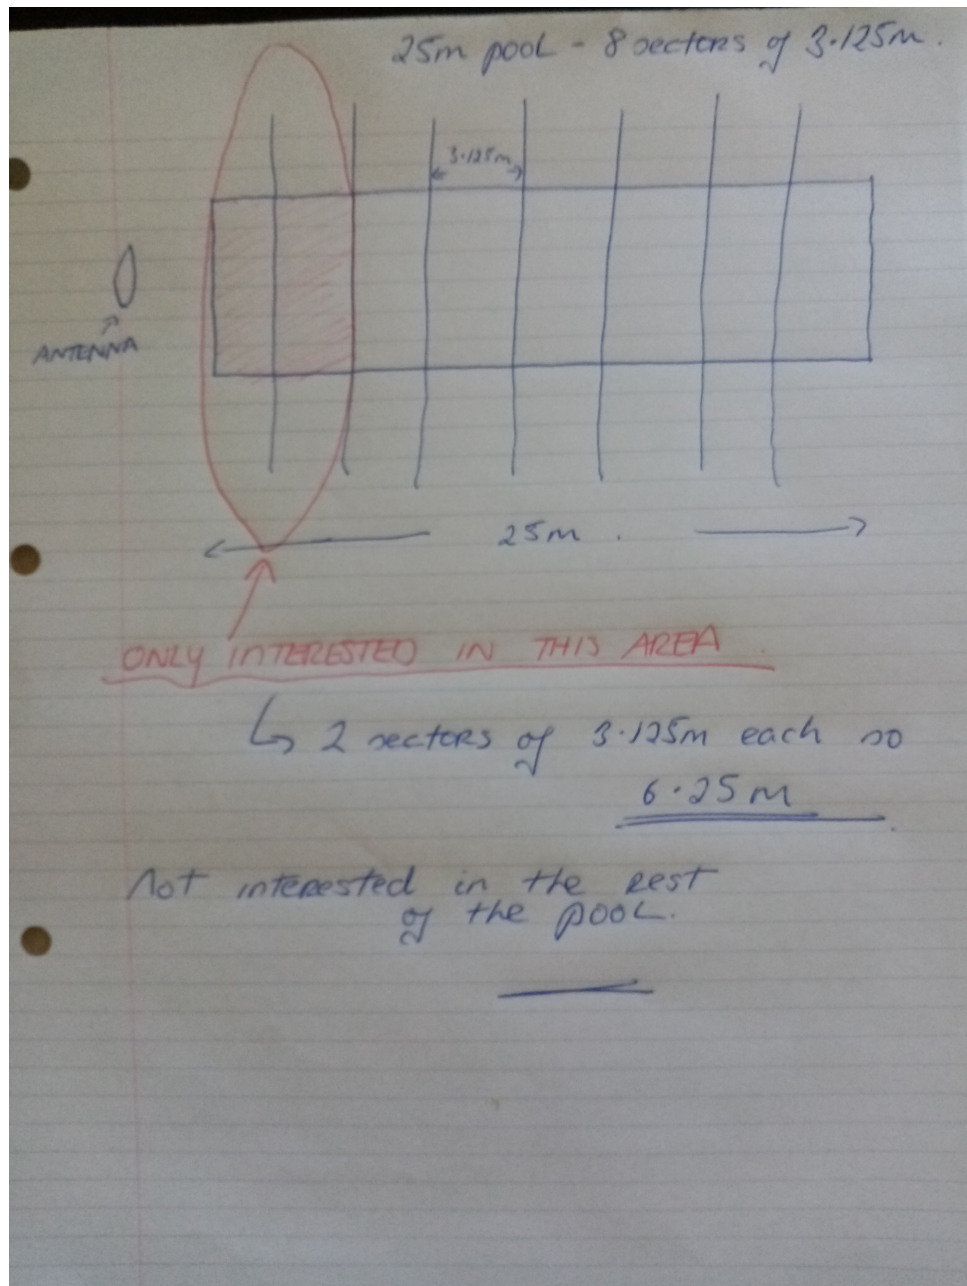 25m pool - 8 sectors of 3.125m.
3.125m
ANTENNA
25m.
ONLY INTERESTED IN THIS AREA.
2 sectors of 3.125m each so
6.25m
Not interested in the rest
of the pool.